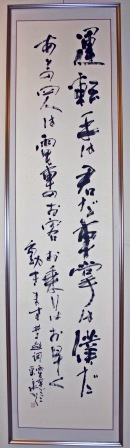 運転手は君だ車掌は僕だ
あとの四人は電車のお客お乗りはお早く